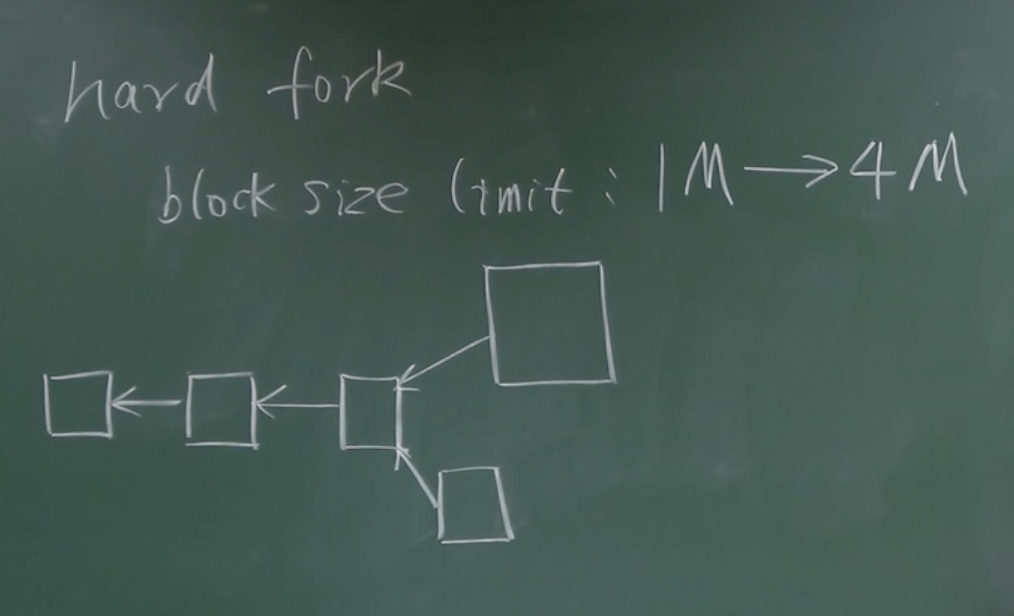 hard fork
block size limit : 1M → 4M